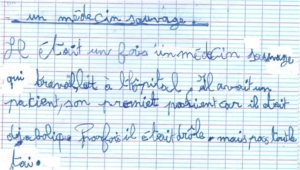 un médecin sauvage.
Il était un fois un médecin sauvage
qui travaillèt à l'ôpital, Il avait un
patient, son premiet patient car il était
diabolique. Parfois il était drôle, mais pas